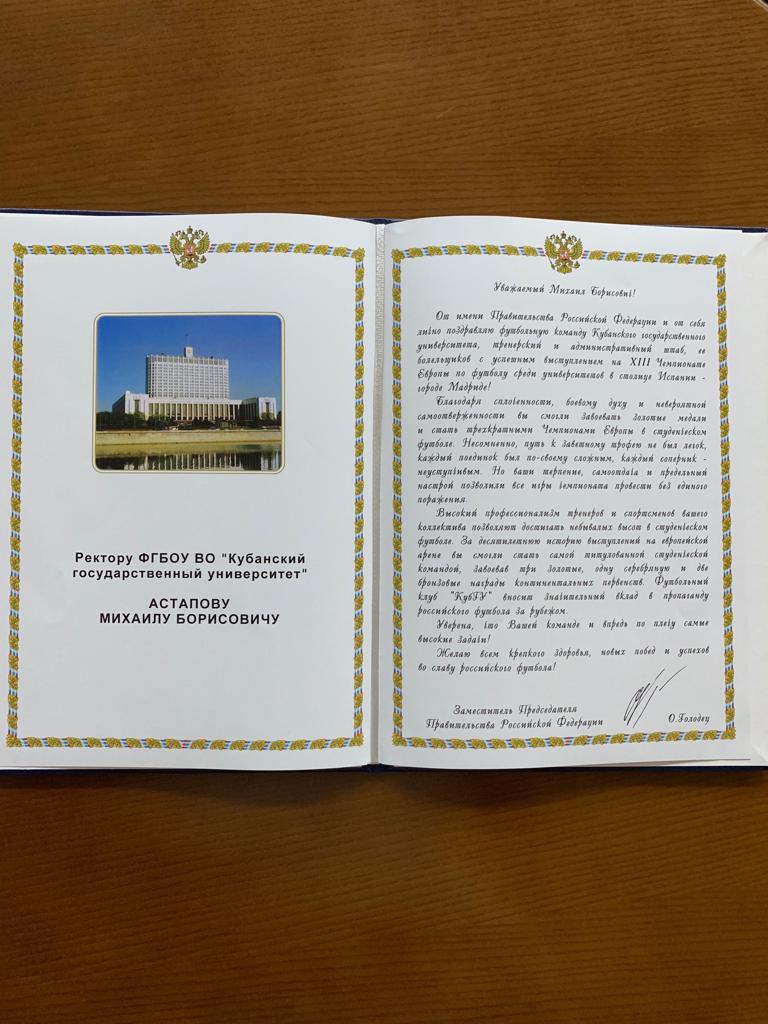 Ректору ФГБОУ ВО "Кубанский
государственный университет"
АСТАПОВУ
МИХАИЛУ БОРИСОВИЧУ
Уважаемый Михаил Борисович!
От имени Правительства Российской Федерации и от себя
лично поздравляю футбольную команду Кубанского государственного
университета, тренерский и административный штаб, ее
болельщиков с успешным выступлением на XIII Чемпионате
Европы по футболу среди университетов в столице Испании -
городе Мадриде!
Благодаря сплоченности, боевому духу и невероятной
самоотверженности вы смогли завоевать золотые медали
и стать трехкратными Чемпионами Европы в студенческом
футболе. Несомненно, путь к заветному трофею не был легок,
каждый поединок был по-своему сложным, каждый соперник -
неуступчивым. Но ваши терпение, самоотдача и предельный
настрой позволили все игры чемпионата провести без единого
поражения.
Высокий профессионализм тренеров и спортсменов вашего
коллектива позволяют достигать небывалых высот в студенческом
футболе. За десятилетнюю историю выступлений на европейской
арене вы смогли стать самой титулованной студенческой
командой, завоевав три золотые, одну серебряную и две
бронзовые награды континентальных первенств. Футбольный
клуб "КубГУ" вносит значительный вклад в пропаганду
российского футбола за рубежом.
Уверена, что Вашей команде и впредь по плечу самые
высокие задачи!
Желаю всем крепкого здоровья, новых побед и успехов
во славу российского футбола!
Заместитель Председателя
Правительства Российской Федерации
О.Голодец